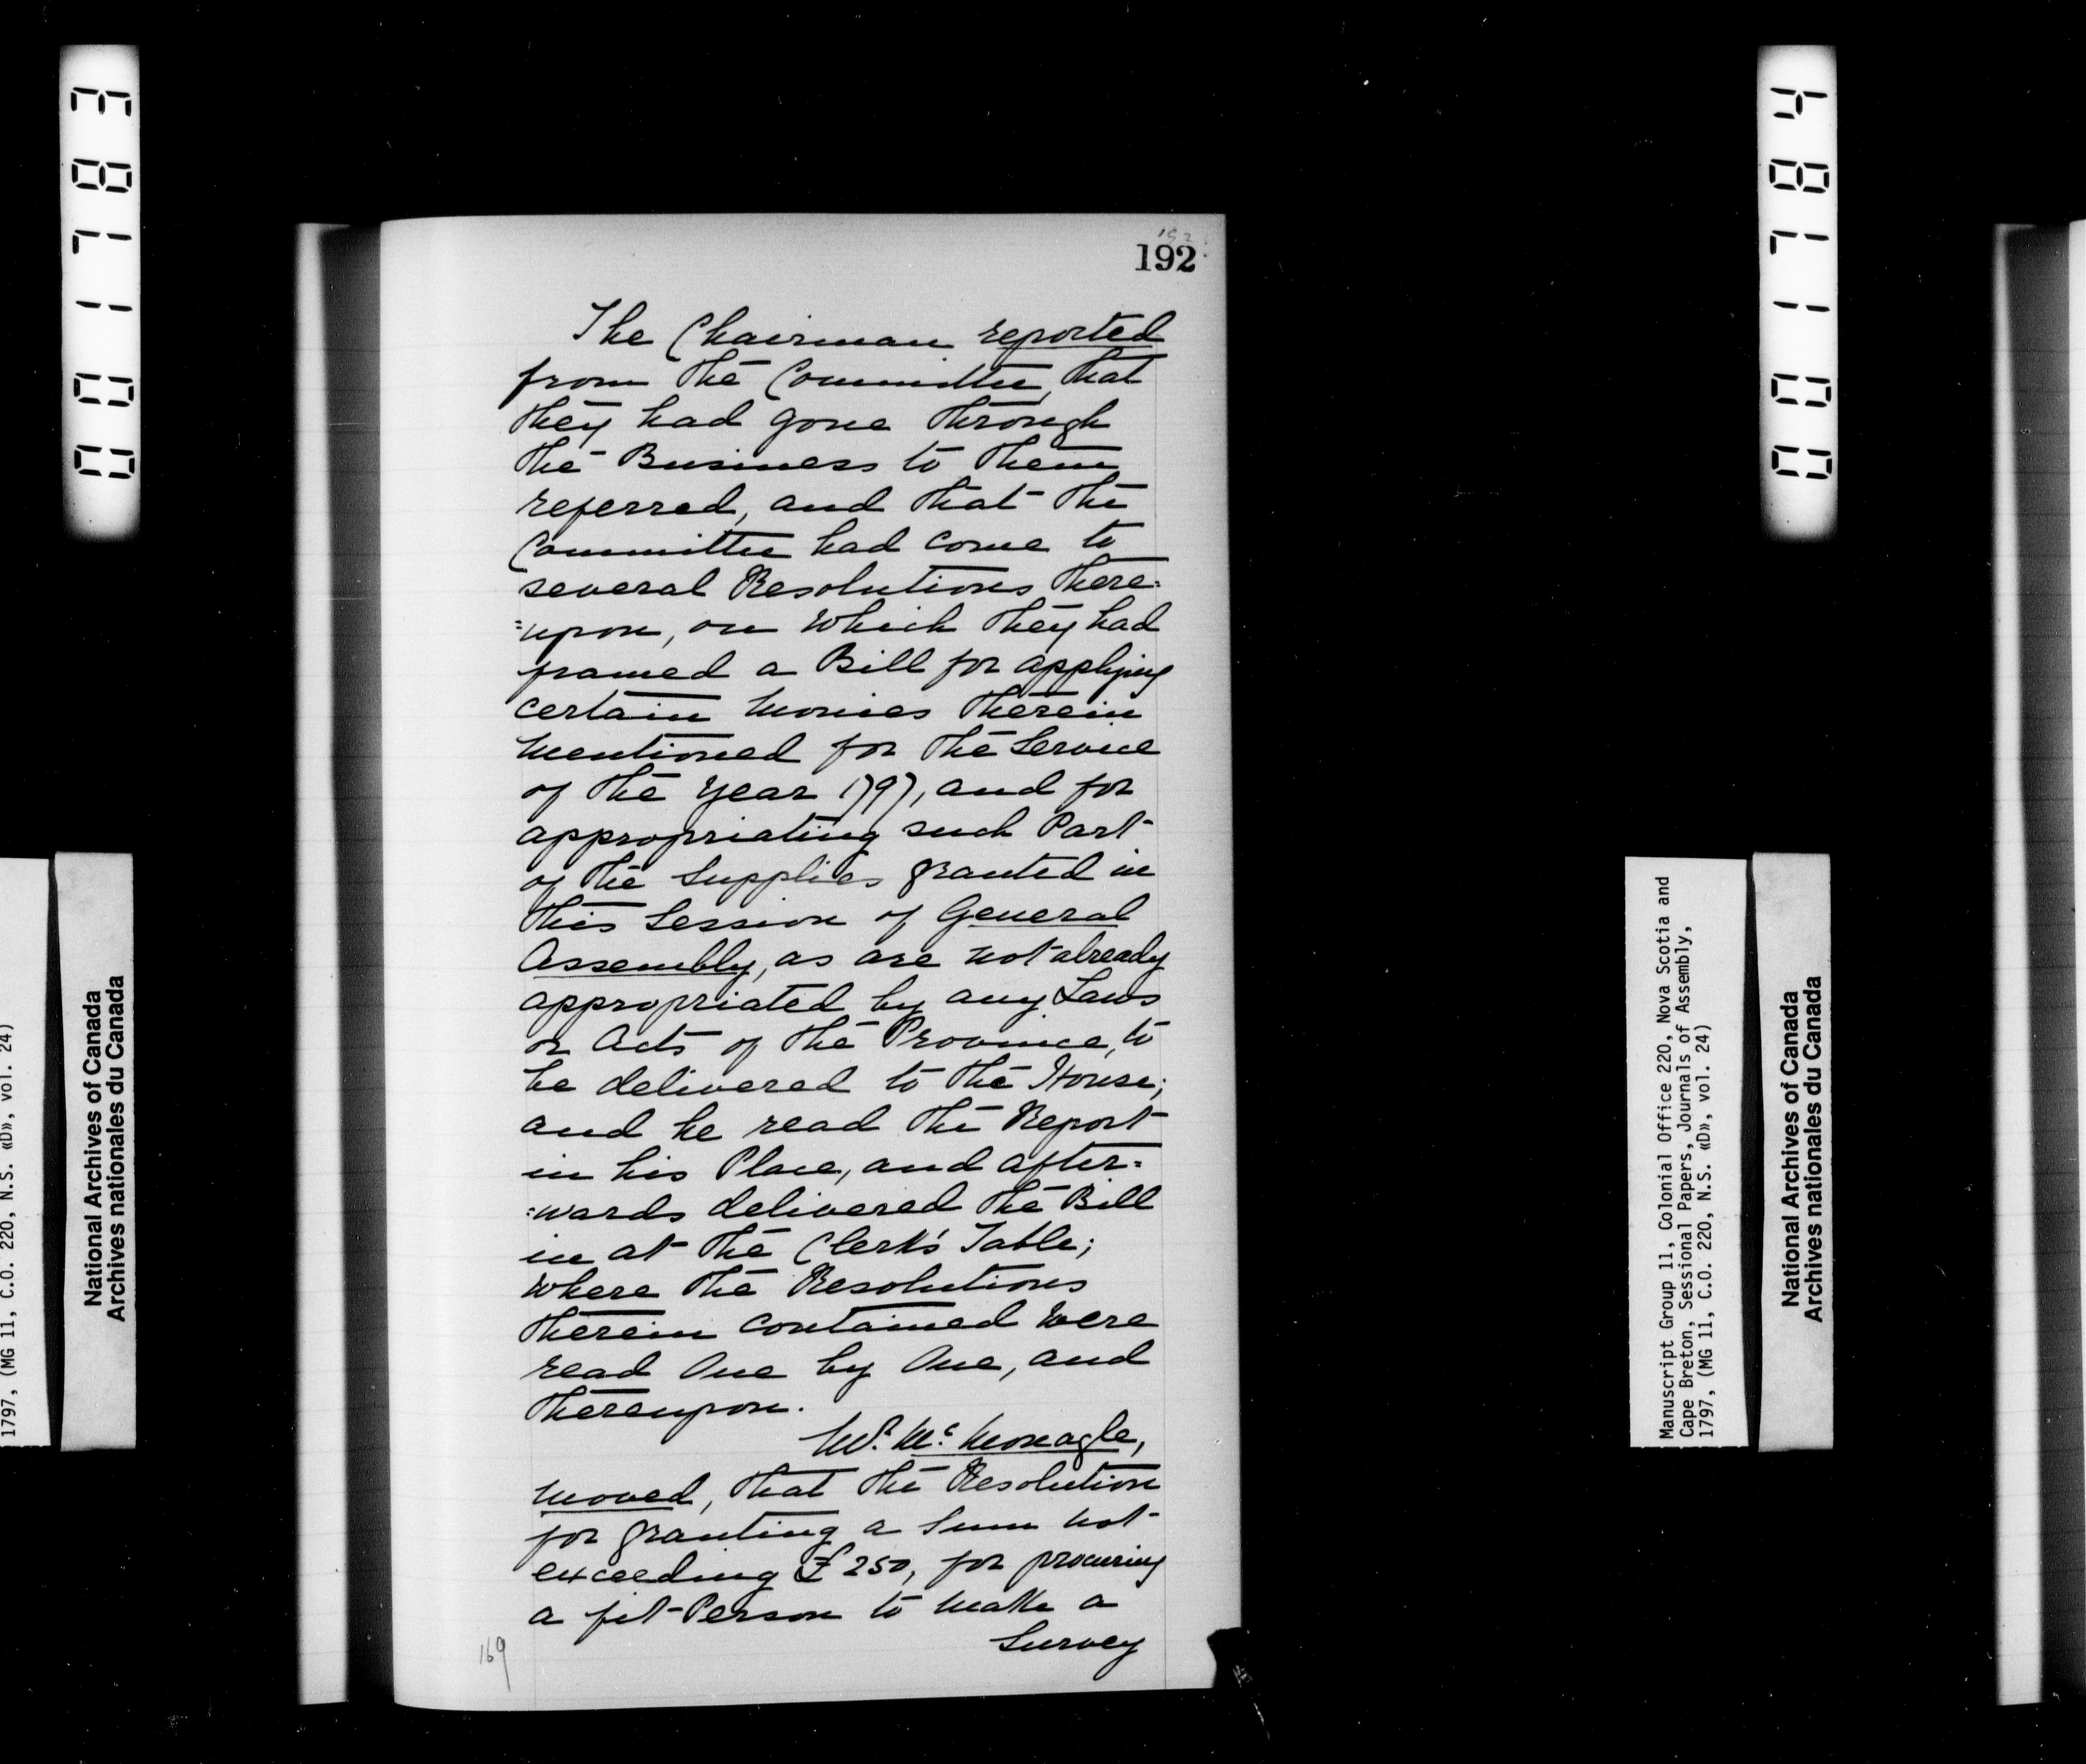 001783
1797, (MG 11, C.O. 220, N.S. «D», vol. 24)
National Archives of Canada
Archives nationales du Canada
192
The Chairman reported
from the Committee, that
they had gone through
the Business to them
referred, and that the
Committee had come to
several Resolutions there=
=upon, on which they had
framed a Bill for applying
certain Monies therein
mentioned for the Service
of the Year 1797, and for
appropriating such Part
of the Supplies granted in
this Session of General
Assembly, as are not already
appropriated by any Laws
or Acts of the Province, to
be delivered to the House;
and he read the Report
in his Place, and after=
=wards delivered the Bill
in at the Clerk's Table;
where the Resolutions
therein contained were
read One by One, and
thereupon.
Mr. Mc. Monagle,
moved, that the Resolution
for granting a Sum not
exceeding £250, for procuring
a fit Person to make a
Survey
169
001784
Manuscript Group 11, Colonial Office 220, Nova Scotia and
Cape Breton, Sessional Papers, Journals of Assembly,
1797, (MG 11, C.O. 220, N.S. «D», vol. 24)
National Archives of Canada
Archives nationales du Canada